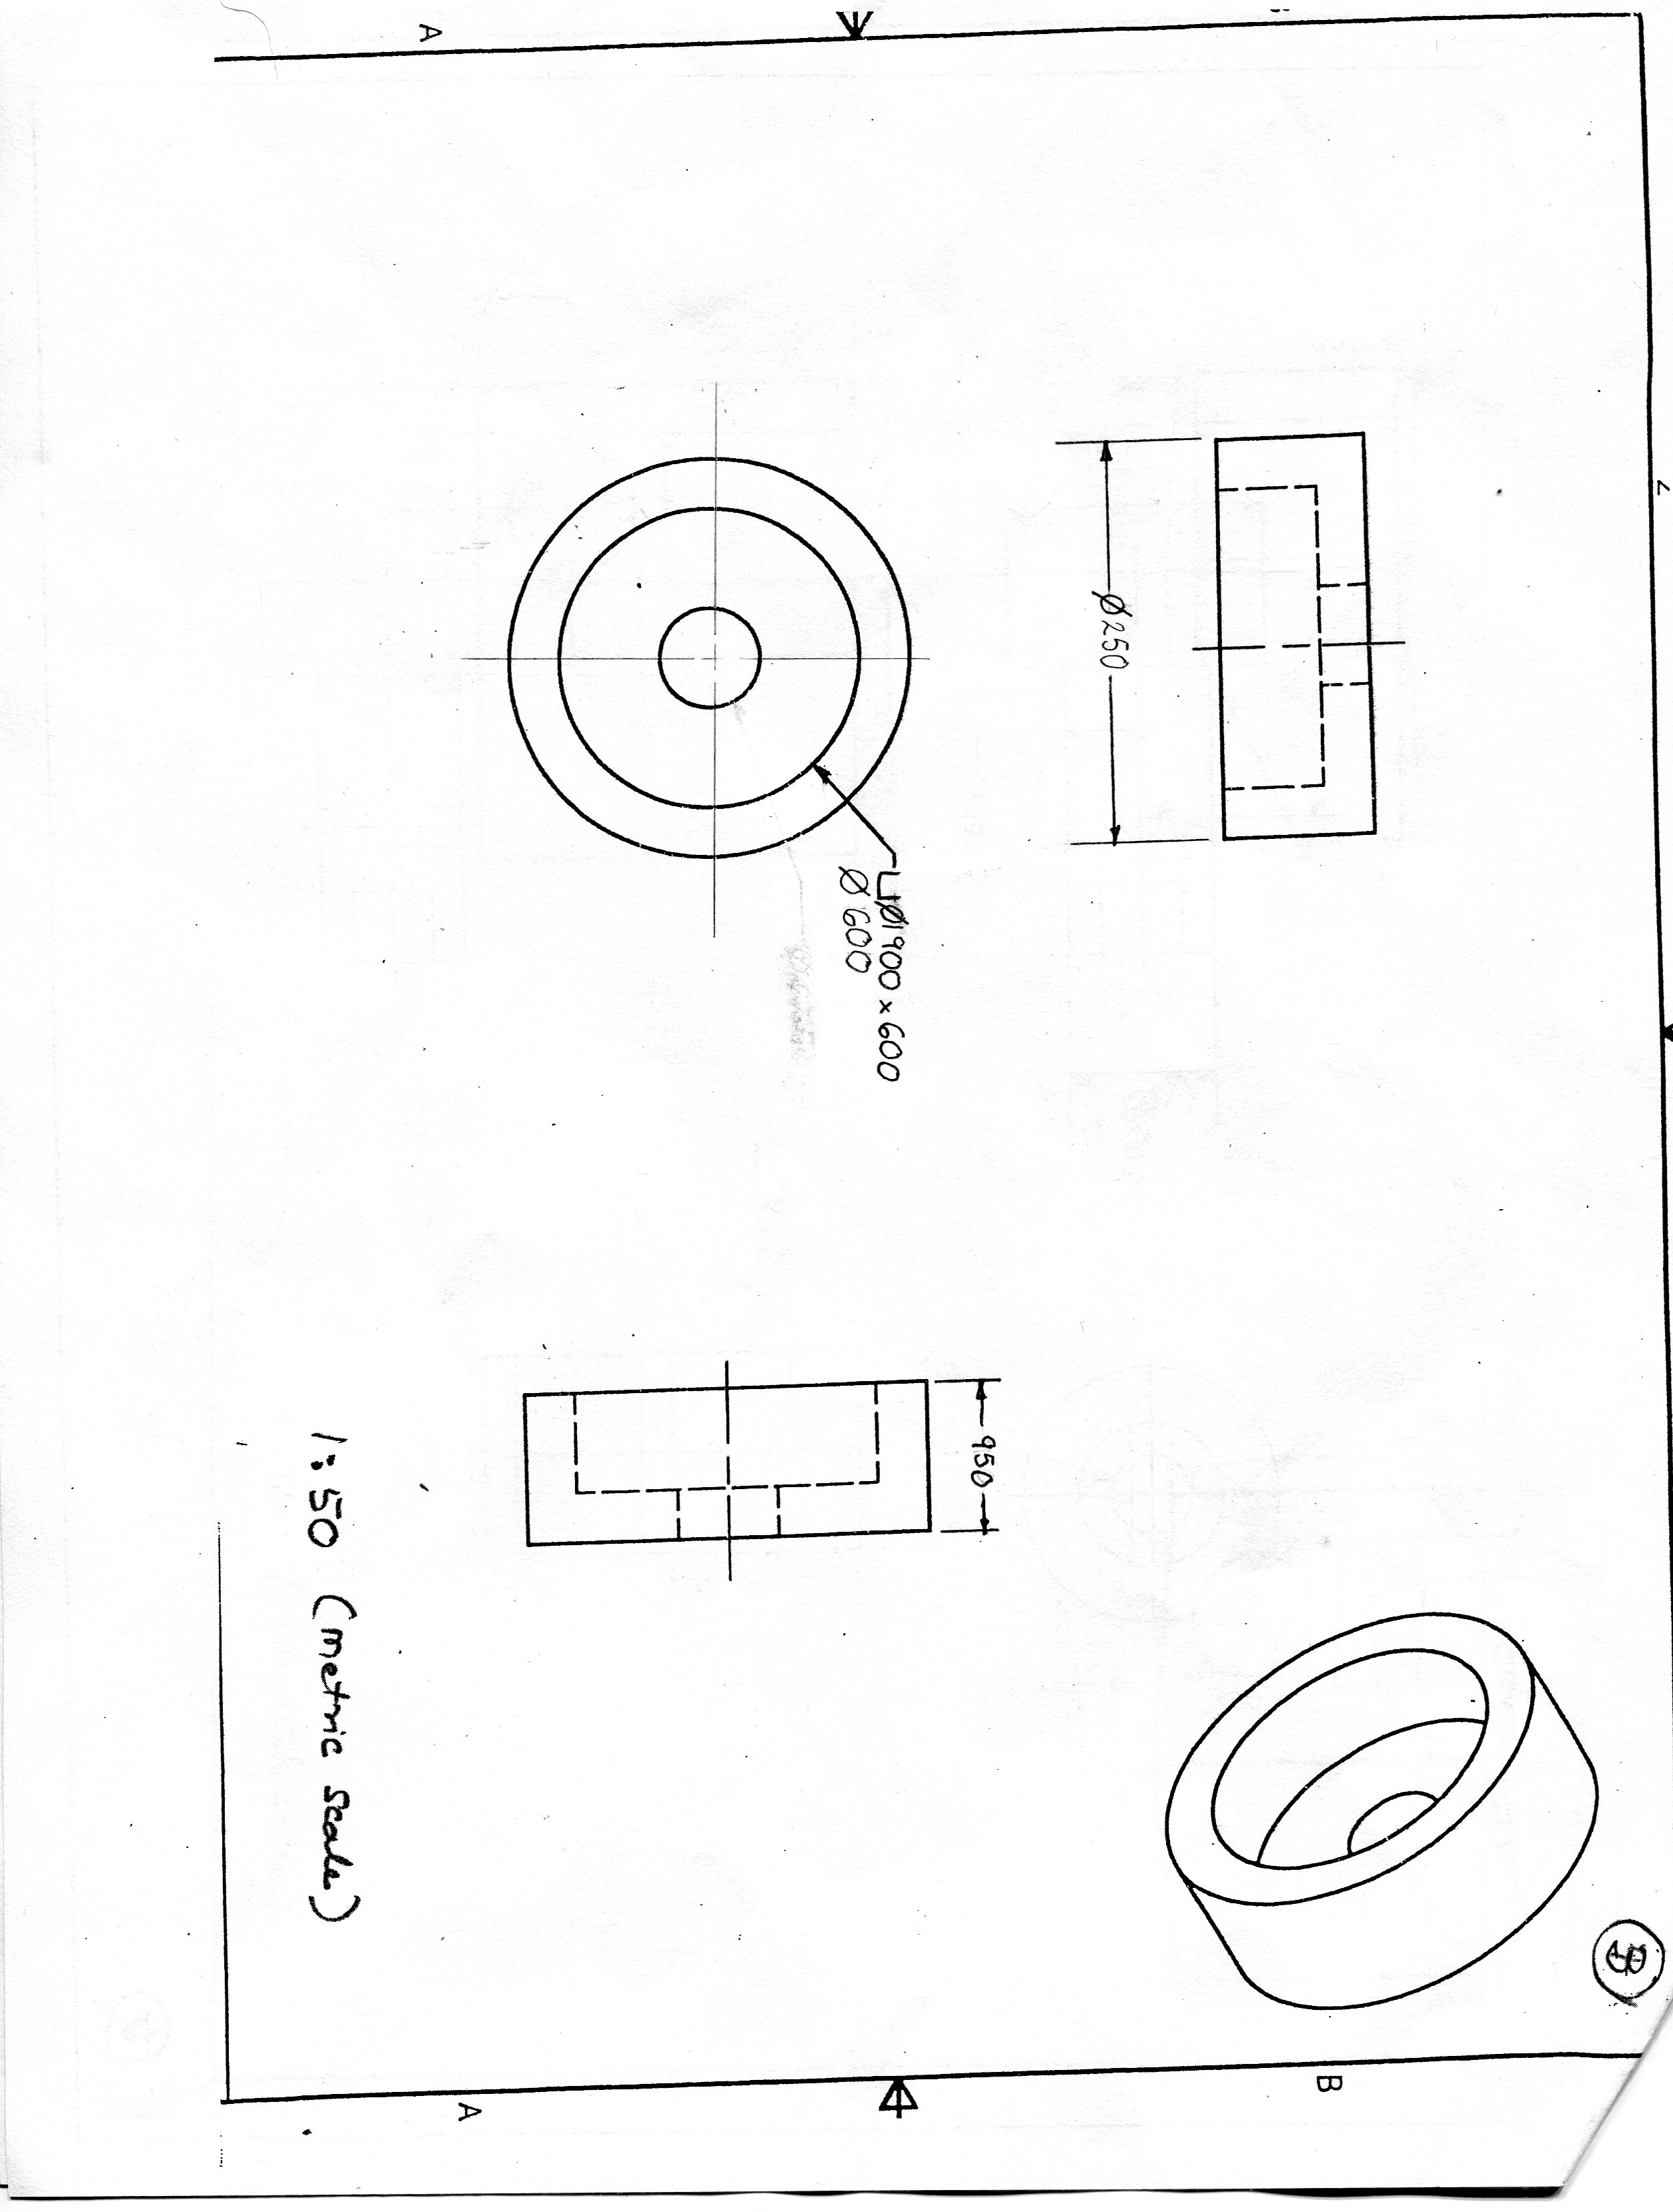 B
Ø250
⌴Ø1900 x 600
Ø600
950
A
A
1:50 (metric scale)